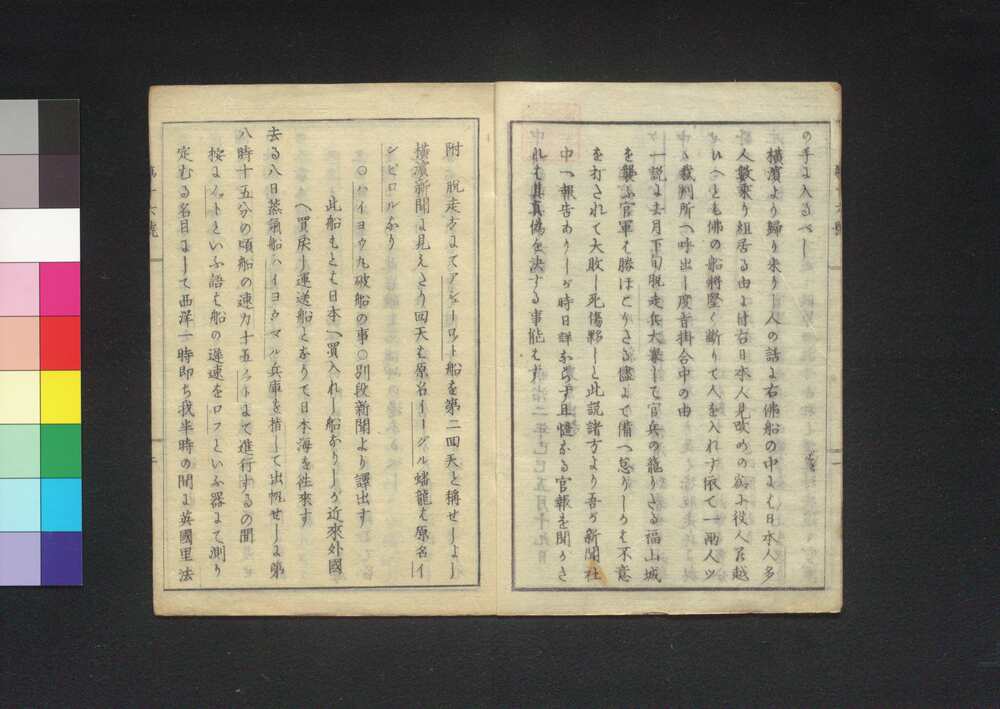 の手に入るべし
横濱より歸り来りし人の話に右佛船の中にも日本人多
人數乗り組居る由に付右日本人見改めの為め役人罷越
といへとも佛の船將堅く斷りて人を入れす依て一兩人ツ
中る裁判所へ呼出し度旨掛合中の由
一説に去月下旬脱走兵大擧して官兵の籠りたる福山城
を襲ふ官軍も勝ほこりたる儘にて備へ怠りしかも不意
を打されて大敗し死傷夥しと此説諸方より吾か新聞社
中へ報告ありしか時日詳ならす且慥なる官報を聞かさ
れは其真偽を決する事能はす
附 脱走方にてアシューロット船を第二回天と稱せしよし
横濱新聞に見えたり回天も原名イーグル蟠龍も原名イ
ンピロルなり
〇ハイヨウ丸破船の事〇別段新聞より譯出す
此船もとも日本へ買入れし船なりしか近來外國
へ買戻し運送船となりて日本海を往來す
去る八日蒸氣船ハイヨウマル兵庫を指して出帆せしに第
八時十五分の頃船の速力十五ノットにて進行するの間
按にノットといふ語も船の遲速をロフといふ器にて測り
定むる名目にして西洋一時即ち我半時の間に英國里法